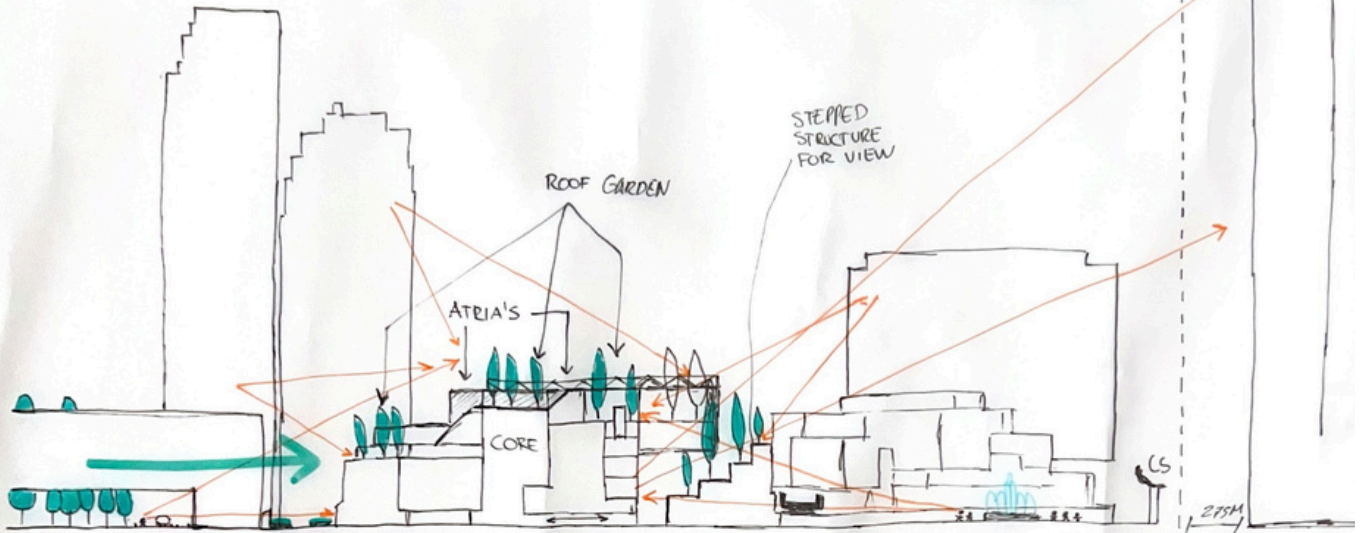 STEPPED
STRUCTURE
FOR VIEW
ROOF GARDEN
ATRIA'S
CORE
CS
275M